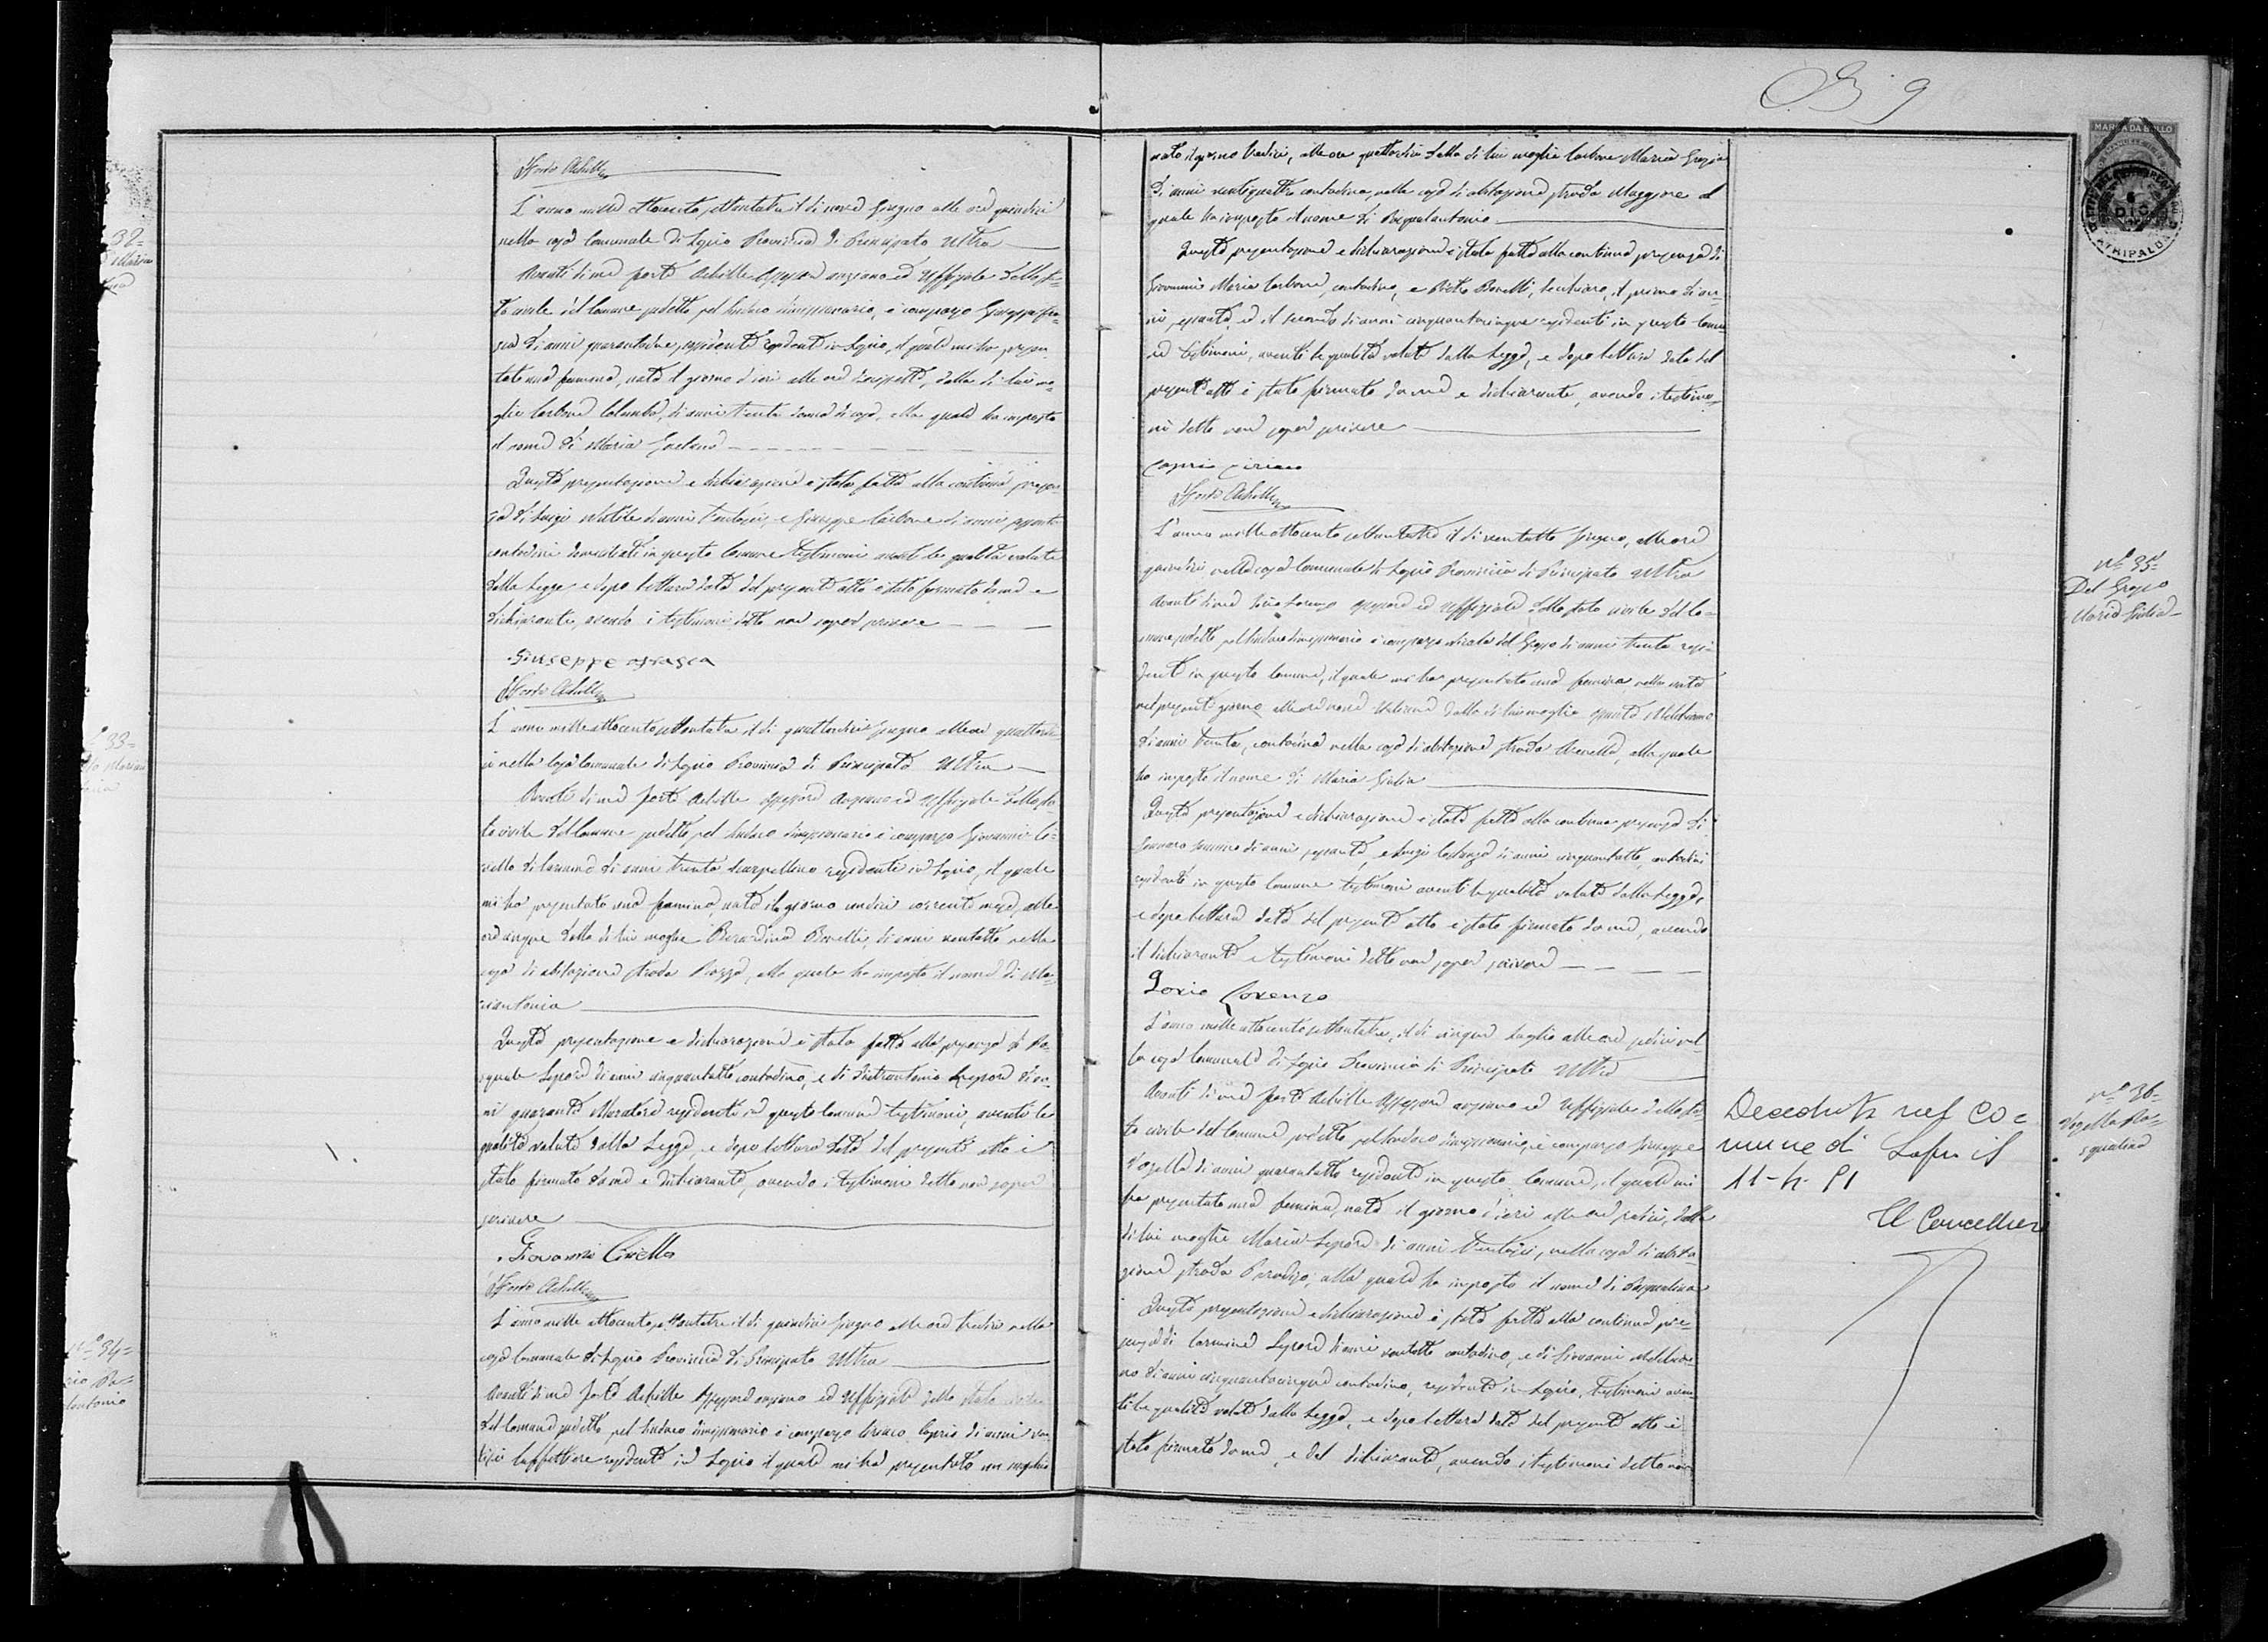 Forte Achille
L'anno mille ottocento settantatre il dì nove Giugno alle ore quindici
nella casa Comunale di Lapio Provincia di Principato Ultra
Avanti di me Forte Achille Assessore anziano ed Uffiziale dello sta=
to civile del Comune suddetto pel Sindaco dimissionario, è comparso Giuseppe
di anni quarantadue, residente in Lapio, il quale mi ha presen
tato una femmina, nata il giorno d'ieri alle ore diciassette, dalla di lui mo=
glie Carbone Colomba, di anni trenta donna di casa, alla quale ha imposto
il nome di Maria Gaetana
Questa presentazione e dichiarazione è stata fatta alla continua presen
za di Luigi di anni trentasei, e Giuseppe Carbone di anni sessanta
contadini domiciliati in questo Comune testimoni aventi le qualità volute
dalla Legge e dopo lettura data del presente atto è stato firmato da me e
dichiarante, avendo i testimoni detto non saper scrivere
Giuseppe
Forte Achille
L'anno mille ottocento settantatre il dì quattordici Giugno alle ore quattordi
ci nella Casa Comunale di Lapio Provincia di Principato Ultra
Avanti di me Forte Achille Assessore Anziano ed Uffiziale dello sta
to civile del Comune suddetto pel Sindaco dimissionario è comparso Giovanni Ci=
riello di Carmine di anni trenta scarpellino residente in Lapio, il quale
mi ha presentato una femmina, nata il giorno undici corrente mese, alle
ore cinque dalla di lui moglie Berardina Bonelli, di anni ventotto nella
casa di abitazione strada Piazza, alla quale ha imposto il nome di Ma=
riantonia
Questa presentazione e dichiarazione è stata fatta alla presenza di Pa=
squale Lepore di anni cinquantotto contadino, e di Pietrantonio Lepore di an=
ni quaranta Muratore residenti in questo Comune testimoni, aventi le
qualità volute dalla Legge, e dopo lettura data del presente atto è
stato firmato da me e dichiarante, avendo i testimoni detto non saper
scrivere
Giovanni Ciriello
Forte Achille
L'anno mille ottocento settantatre il dì quindici Giugno alle ore tredici nella
casa Comunale di Lapio Provincia di Principato Ultra
Avanti di me Forte Achille Assessore anziano ed Uffiziale dello stato civile
del Comune suddetto pel Sindaco dimissionario è comparso Ciriaco Caprio di anni ven
tisei Caffettiere residente in Lapio il quale mi ha presentato un maschio
32=
33=
Nº 34=
9
MARCA DA BOLLO
ATRIPALDA
nato il giorno tredici, alle ore quattordici dalla di lui moglie Carbone Maria Grazia
di anni ventiquattro contadina, nella casa di abitazione strada Maggiore al
quale ha imposto il nome di Pasqualantonio
Questa presentazione e dichiarazione è stata fatta alla continua presenza di
Giovanni Maria Carbone, contadino, e Pietro Bonelli, il primo di an=
ni sessanta, ed il secondo di anni cinquantacinque residenti in questo Comune
ed testimoni, aventi le qualità volute dalla Legge, e dopo lettura data del
presente atto è stato firmato da me e dichiarante, avendo i testimo=
ni detto non saper scrivere
Caprio Ciriaco
Forte Achille
L'anno mille ottocento settantatre il dì ventotto Giugno, alle ore
quindici nella casa Comunale di Lapio Provincia di Principato Ultra
Avanti di me Iorio Lorenzo Assessore ed Uffiziale dello stato civile del Co=
mune suddetto pel Sindaco dimissionario è comparso Nicola del Grosso di anni trenta resi
dente in questo Comune, il quale mi ha presentato una femmina nata
nel presente giorno alle ore nove Italiane dalla di lui moglie
di anni trenta, contadina nella casa di abitazione strada, alla quale
ha imposto il nome di Maria Giulia
Questa presentazione e dichiarazione è stata fatta alla continua presenza di
Gennaro di anni sessanta, e Luigi Costanza di anni cinquantotto, contadini
residenti in questo Comune testimoni aventi le qualità volute dalla Legge,
e dopo lettura data del presente atto è stato firmato da me, avendo
il dichiarante e testimoni detto non saper scrivere
Iorio Lorenzo
L'anno mille ottocento settantatre, il dì cinque Luglio alle ore sedici nel
la casa Comunale di Lapio Provincia di Principato Ultra
Avanti di me Forte Achille Assessore anziano ed Uffiziale dello sta
to civile del Comune suddetto pel Sindaco dimissionario, è comparso Giuseppe
di anni quarantotto residente in questo Comune, il quale mi
ha presentato una femmina, nata il giorno d'ieri alle ore sedici, dalla
di lui moglie Maria Lepore di anni trentasei, nella casa di abita
zione strada Paradiso, alla quale ha imposto il nome di Pasqualina
Questa presentazione e dichiarazione è stata fatta alla continua pre=
senza di Carmine Lepore di anni ventotto contadino, e di Giovanni
di anni cinquantacinque contadino, residenti in Lapio, testimoni aven
ti le qualità volute dalla Legge, e dopo lettura data del presente atto è
stato firmato da me, e del dichiarante, avendo i testimoni detto non
Nº 35=
Del Grosso
Maria Giulia
Nº 36=
Pa=
squalina
Deceduta nel Co=
mune di Lapio il
11-4-51
Il Cancelliere